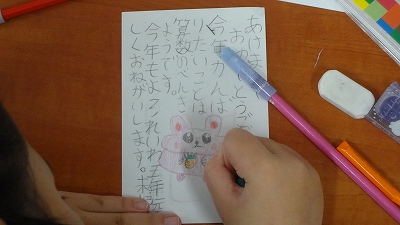 あけまし
おめ とうご
今年がんば
りたいことは
算数のべんき
ょうです。
今年もよろ
しくおねがいします。
れいわ五年